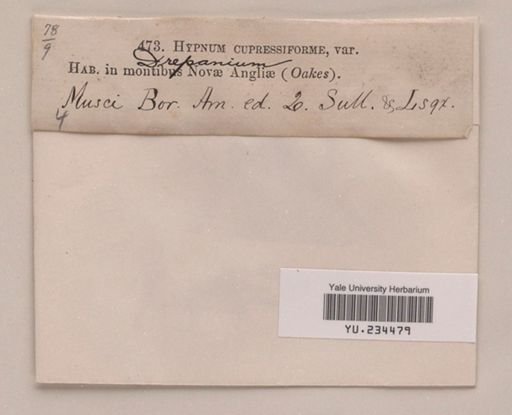 78
9
473. HYPNUM CUPRESSIFORME, var.
Drepanium
HAB. in montibus Novæ Angliæ (Oakes).
Musci Bor. Am. ed. 2. Sull. & Lsqx.
4
Yale University Herbarium
YU.234479